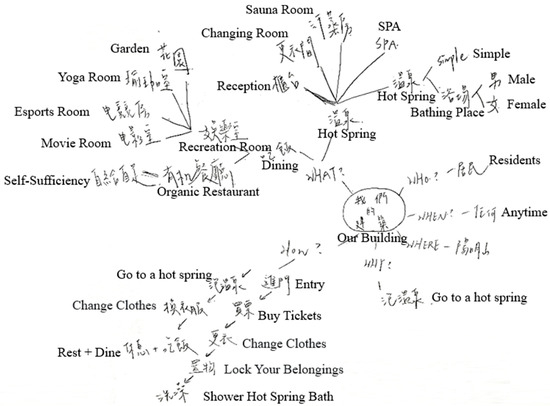 Sauna Room 汗蒸房
Changing Room 更衣間
SPA
SPA
Garden 花園
Yoga Room 瑜珈室
Reception 櫃台
溫泉
Hot Spring
simple Simple
浴場
Bathing Place
男 Male
女 Female
Esports Room 电競房
Movie Room 电影室
娛樂室
Recreation Room
溫泉
Hot Spring
吃飯
Dining
Self-Sufficiency 自給自足
有机餐廳
Organic Restaurant
WHAT?
WHO? - 居民 Residents
我們
的
建築
Our Building
WHEN? - 任何 Anytime
WHERE - 陽明山
WHY?
泡溫泉 Go to a hot spring
HOW?
進門 Entry
買票 Buy Tickets
更衣 Change Clothes
置物 Lock Your Belongings
洗澡 Shower Hot Spring Bath
Go to a hot spring 泡溫泉
Change Clothes 換衣服
Rest + Dine 休息 + 吃飯